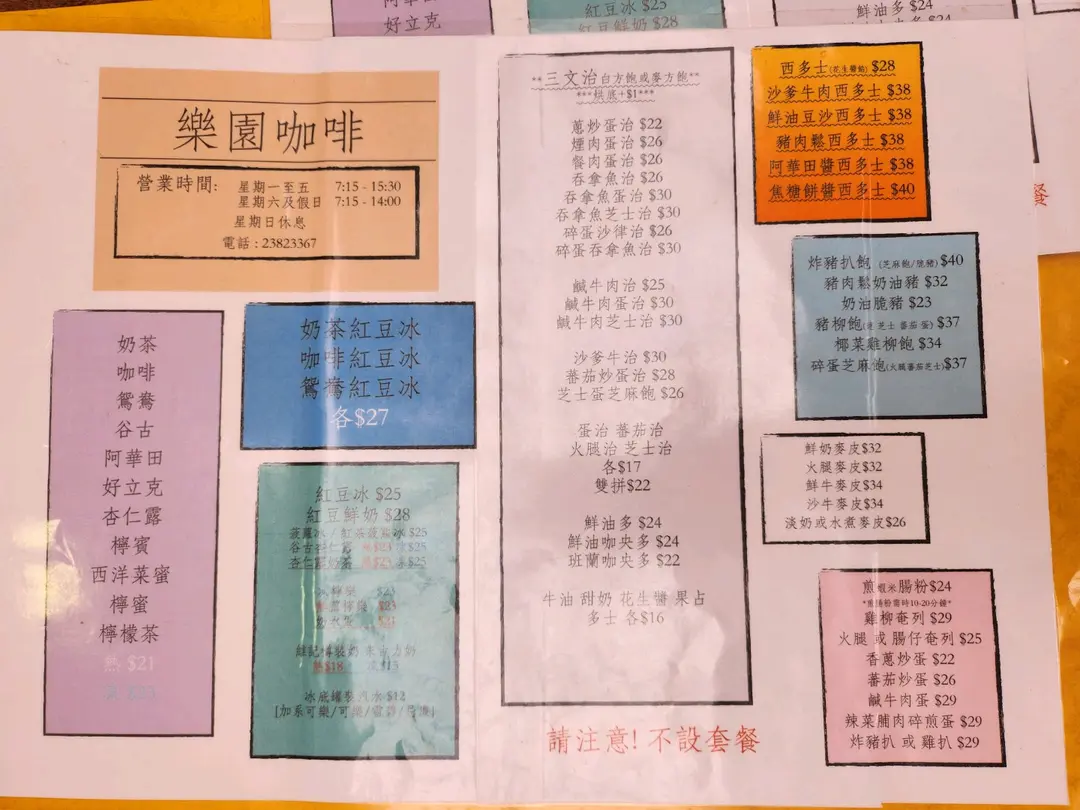 好立克
紅豆冰 $25
紅豆鮮奶 $28
鮮油多 $24
樂園咖啡
營業時間:
星期一至五 7:15 - 15:30
星期六及假日 7:15 - 14:00
星期日休息
電話 : 23823367
奶茶
咖啡
鴛鴦
谷古
阿華田
好立克
杏仁露
檸賓
西洋菜蜜
檸蜜
檸檬茶
熱 $21
奶茶紅豆冰
咖啡紅豆冰
鴛鴦紅豆冰
各$27
紅豆冰 $25
紅豆鮮奶 $28
菠蘿冰 / 紅茶菠蘿冰 $25
谷古杏仁露 熱$23 凍$25
杏仁露奶茶 $25
$23
$23
熱$18
冰底罐裝汽水 $12
**三文治 白方飽或麥方飽**
***烘底+$1***
蔥炒蛋治 $22
煙肉蛋治 $26
餐肉蛋治 $26
吞拿魚治 $26
吞拿魚蛋治 $30
吞拿魚芝士治 $30
碎蛋沙律治 $26
碎蛋吞拿魚治 $30
鹹牛肉治 $25
鹹牛肉蛋治 $30
鹹牛肉芝士治 $30
沙爹牛治 $30
蕃茄炒蛋治 $28
芝士蛋芝麻飽 $26
蛋治 蕃茄治
火腿治 芝士治
各$17
雙拼$22
鮮油多 $24
鮮油咖央多 $24
班蘭咖央多 $22
牛油 甜奶 花生醬 果占
多士 各$16
請注意! 不設套餐
西多士(花生醬餡) $28
沙爹牛肉西多士 $38
鮮油豆沙西多士 $38
豬肉鬆西多士 $38
阿華田醬西多士 $38
焦糖餅醬西多士 $40
炸豬扒飽 (芝麻飽/脆豬) $40
豬肉鬆奶油豬 $32
奶油脆豬 $23
豬柳飽 芝士 蕃茄 蛋) $37
椰菜雞柳飽 $34
碎蛋芝麻飽(火腿蕃茄芝士)$37
鮮奶麥皮$32
火腿麥皮$32
鮮牛麥皮$34
沙牛麥皮$34
淡奶或水煮麥皮$26
煎蝦米腸粉$24
*煎腸粉需時10-20分鐘*
雞柳奄列 $29
火腿 或 腸仔奄列 $25
香蔥炒蛋 $22
蕃茄炒蛋 $26
鹹牛肉蛋 $29
辣菜脯肉碎煎蛋 $29
炸豬扒 或 雞扒 $29
餐